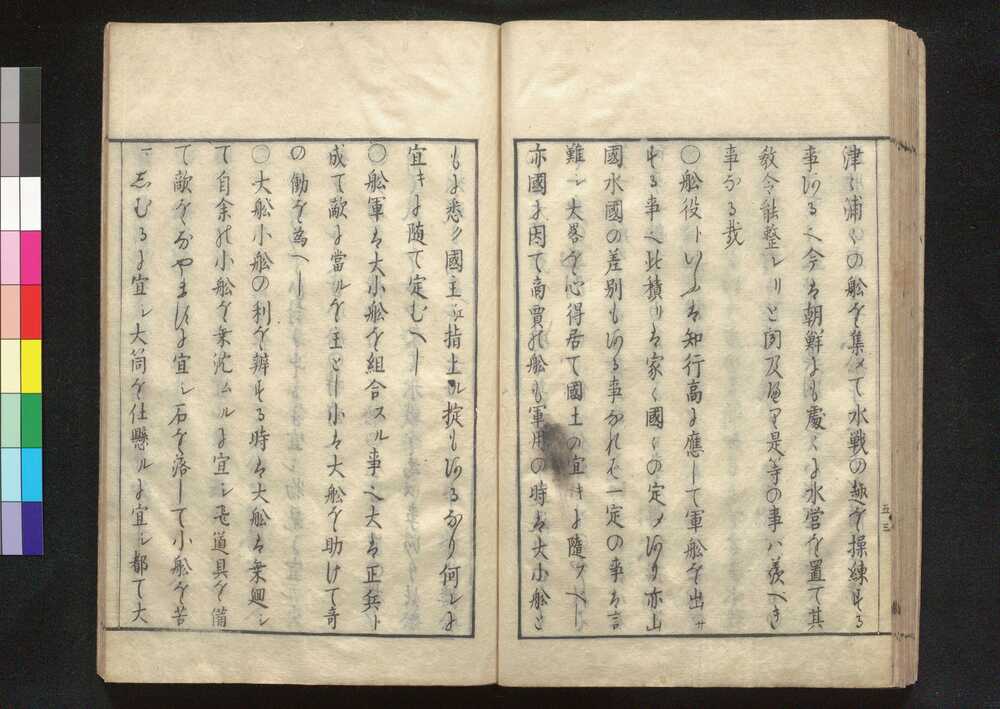 津〻浦〻の舩を集メて水戦の趣を操練する
事ある也今は朝鮮にも處〻に水営を置て其
教令能整シリと聞及へり是等の事ハ羨へき
事なる哉
○舩役トいふは知行高に應して軍舩を出サ
する事也此積リは家〻國〻の定メあり亦山
國水國の差別もある事なれは一定の事は言
難シ大畧を心得居て國土の宜キに隨フへし
亦國に因て商賈の舩も軍用の時は大小舩と
もに悉ク國主江指上ル掟もあるなり何レに
宜キに随て定むへし
○舩軍は大小舩を組合スル事也大は正兵ト
成て敵に當ルを主とし小は大舩を助けて奇
の働を為へし
○大舩小舩の利を辨する時は大舩は乗廻シ
て自余の小舩を乗沈ムルに宜シ飛道具を備
て敵をなやますに宜シ石を落して小舩を苦
しむるに宜シ大筒を仕懸ルに宜シ都て大
五三